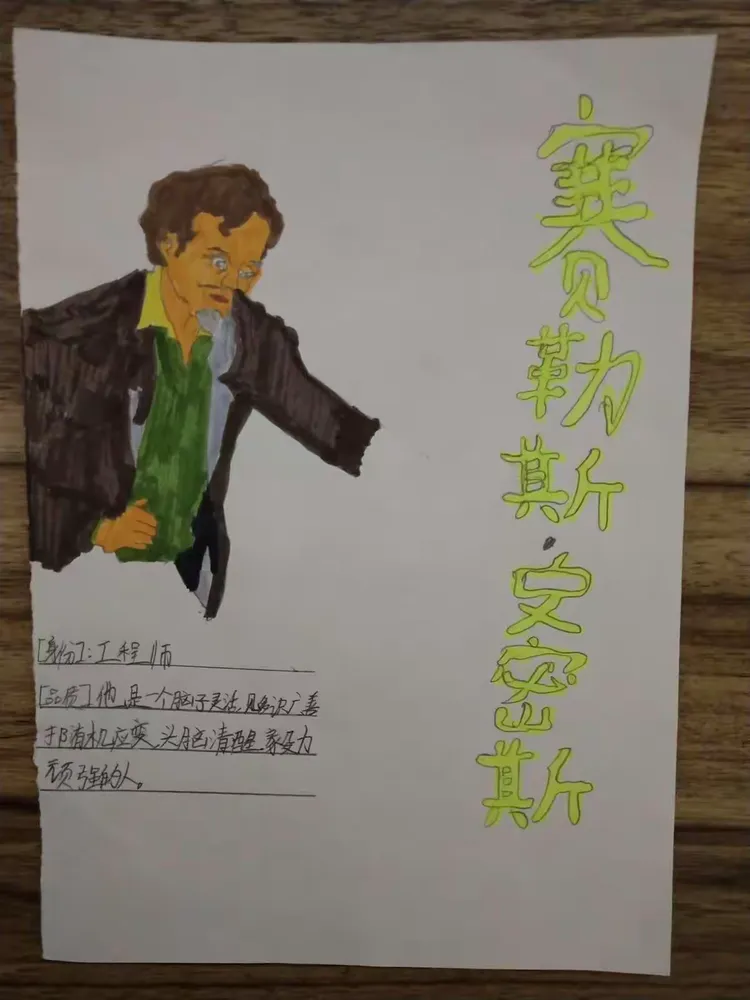 赛勒斯·史密斯
[身份]:工程师
[品质]他是一个脑子灵活,见多识广善
于随机应变,头脑清醒,毅力
顽强的人。